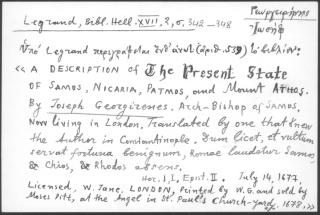 Γεωργειρήνης
Ἰωσήφ
Legrand, Bibl. Hell. XVII, 2, σ. 342–348
Ὑπὸ Legrand περιγράφεται (ἀριθ. 539) βιβλίον:
« A DESCRIPTION of The Present State
OF SAMOS, NICARIA, PATMOS, and Mount ATHOS.
By Joseph Georgirenes, Arch-Bishop of SAMOS,
Now living in London, Translated by one that knew
the Author in Constantinople. Dum licet, et vultum
servat fortuna benignum, Romae laudetur Samos,
& Chios, & Rhodos absens.
Hor. l. I, Epist. II. July 14, 1677.
Licensed, W. Jane. LONDON, Printed by W. G. and sold by
Moses Pitt, at the Angel in St. Paul's Church-yard, 1678. »